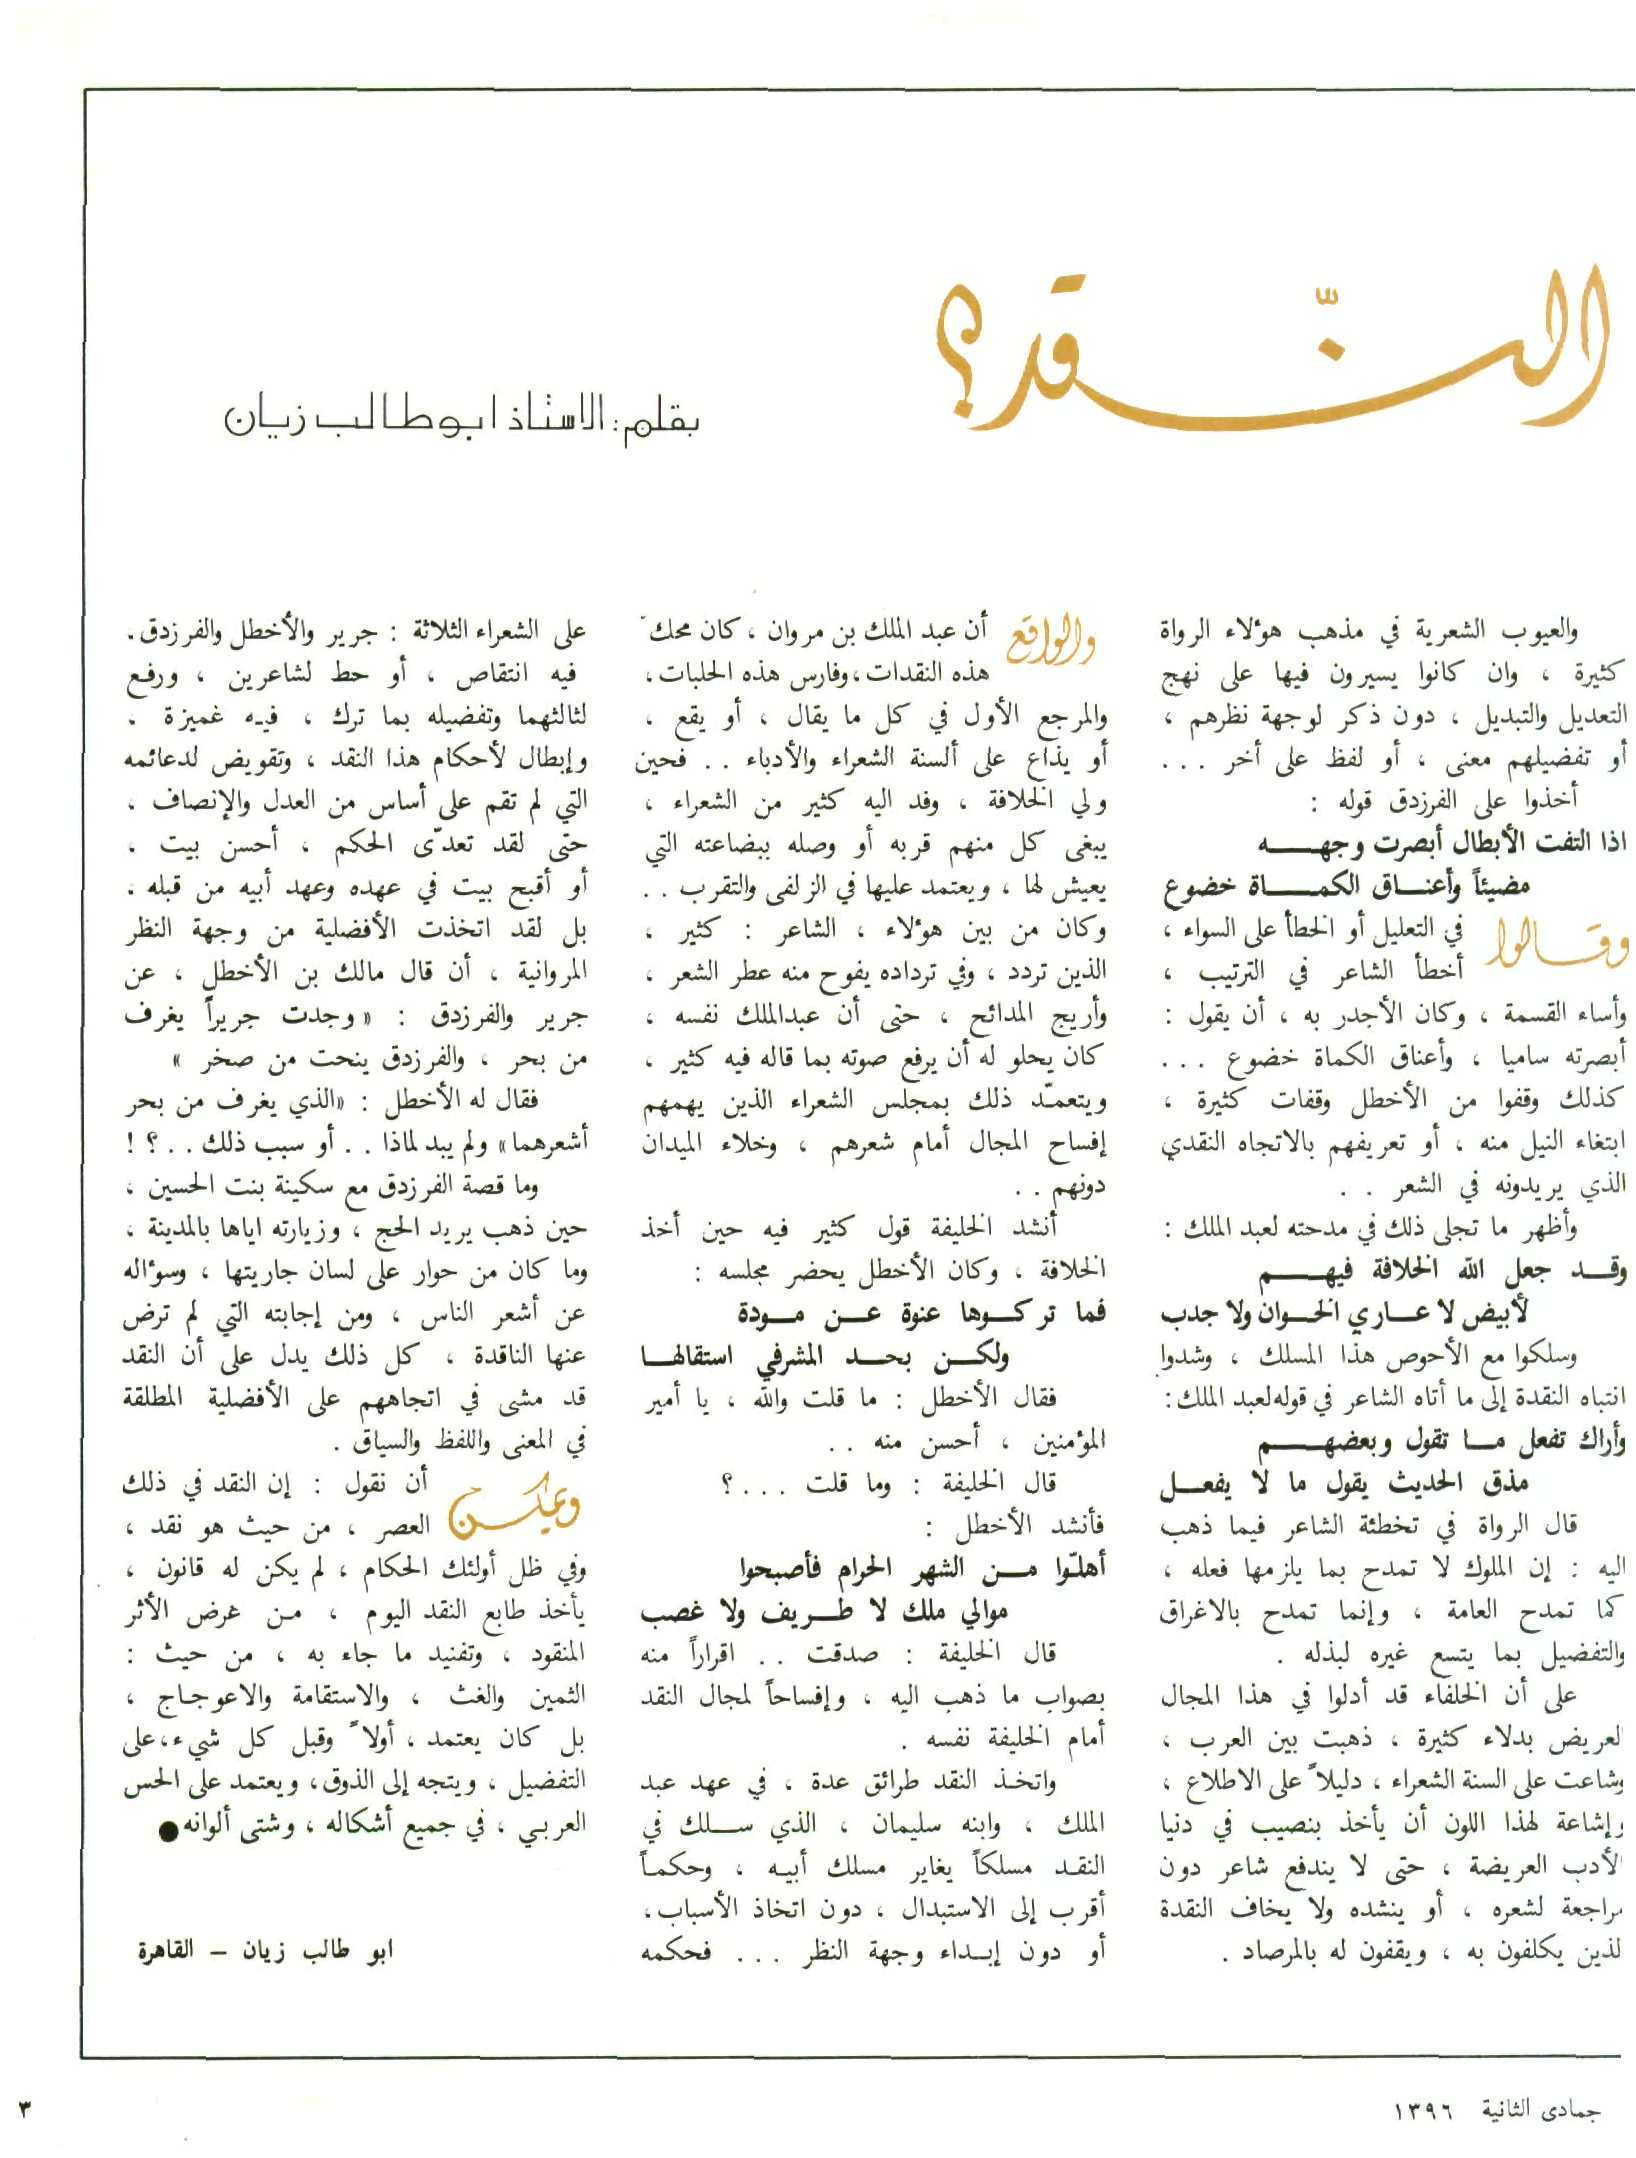 النّقد؟
بقلم: الاستاذ ابو طالب زيان
والعيوب الشعرية في مذهب هؤلاء الرواة
كثيرة ، وان كانوا يسيرون فيها على نهج
التعديل والتبديل ، دون ذكر لوجهة نظرهم ،
أو تفضيلهم معنى ، أو لفظ على أخر ...
أخذوا على الفرزدق قوله :
اذا التفت الأبطال أبصرت وجهــه
مضيئاً وأعنــاق الكمــاة خضوع
وقــالوا في التعليل أو الخطأ على السواء ،
أخطأ الشاعر في الترتيب ،
وأساء القسمة ، وكان الأجدر به ، أن يقول :
أبصرته ساميا ، وأعناق الكماة خضوع ...
كذلك وقفوا من الأخطل وقفات كثيرة ،
ابتغاء النيل منه ، أو تعريفهم بالاتجاه النقدي
الذي يريدونه في الشعر . .
وأظهر ما تجلى ذلك في مدحته لعبد الملك :
وقــد جعل الله الخلافة فيهــم
لأبيض لا عــاري الخــوان ولا جدب
وسلكوا مع الأحوص هذا المسلك ، وشدوا
انتباه النقدة إلى ما أتاه الشاعر في قوله لعبد الملك:
وأراك تفعل مــا تقول وبعضهــم
مذق الحديث يقول ما لا يفعــل
قال الرواة في تخطئة الشاعر فيما ذهب
اليه : إن الملوك لا تمدح بما يلزمها فعله ،
كما تمدح العامة ، وإنما تمدح بالاغراق
والتفضيل بما يتسع غيره لبذله .
على أن الخلفاء قد أدلوا في هذا المجال
لعريض بدلاء كثيرة ، ذهبت بين العرب ،
وشاعت على السنة الشعراء ، دليلاً على الاطلاع ،
وإشاعة لهذا اللون أن يأخذ بنصيب في دنيا
لأدب العريضة ، حتى لا يندفع شاعر دون
مراجعة لشعره ، أو ينشده ولا يخاف النقدة
لذين يكلفون به ، ويقفون له بالمرصاد .
والواقع أن عبد الملك بن مروان ، كان محكّ
هذه النقدات، وفارس هذه الحلبات،
والمرجع الأول في كل ما يقال ، أو يقع ،
أو يذاع على ألسنة الشعراء والأدباء .. فحين
ولي الخلافة ، وفد اليه كثير من الشعراء ،
يبغى كل منهم قربه أو وصله ببضاعته التي
يعيش لها ، ويعتمد عليها في الزلفى والتقرب ..
وكان من بين هؤلاء ، الشاعر : كثير ،
الذين تردد ، وفي ترداده يفوح منه عطر الشعر ،
وأريج المدائح ، حتى أن عبدالملك نفسه ،
كان يحلو له أن يرفع صوته بما قاله فيه كثير ،
ويتعمّد ذلك بمجلس الشعراء الذين يهمهم
إفساح المجال أمام شعرهم ، وخلاء الميدان
دونهم ..
أنشد الخليفة قول كثير فيه حين أخذ
الخلافة ، وكان الأخطل يحضر مجلسه :
فما تركــوها عنوة عــن مــودة
ولكــن بحــد المشرفي استقالهــا
فقال الأخطل : ما قلت والله ، يا أمير
المؤمنين ، أحسن منه ..
قال الخليفة : وما قلت ...؟
فأنشد الأخطل :
أهلّوا مــن الشهر الحرام فأصبحوا
موالي ملك لا طــريف ولا غصب
قال الخليفة : صدقت .. اقراراً منه
بصواب ما ذهب اليه ، وإفساحاً لمجال النقد
أمام الخليفة نفسه .
واتخـذ النقد طرائق عدة ، في عهد عبد
الملك ، وابنه سليمان ، الذي ســلك في
النقـد مسلكاً يغاير مسلك أبيـه ، وحكمـاً
أقرب إلى الاستبدال ، دون اتخاذ الأسباب،
أو دون إبـداء وجهة النظر ... فحكمه
على الشعراء الثلاثة : جرير والأخطل والفرزدق.
فيه انتقاص ، أو حط لشاعرين ، ورفـع
لثالثهما وتفضيله بما ترك ، فيـه غميزة .
وإبطال لأحكام هذا النقد ، وتقويض لدعائمه
التي لم تقم على أساس من العدل والإنصاف ،
حتى لقد تعدّى الحكم ، أحسن بيت ،
أو أقبح بيت في عهده وعهد أبيه من قبله ،
بل لقد اتخذت الأفضلية من وجهة النظر
المروانية ، أن قال مالك بن الأخطل ، عن
جرير والفرزدق : « وجدت جريراً يغرف
من بحر ، والفرزدق ينحت من صخر »
فقال له الأخطل : «الذي يغرف من بحر
أشعرهما» ولم يبد لماذا .. أو سبب ذلك ..؟ !
وما قصة الفرزدق مع سكينة بنت الحسين ،
حين ذهب يريد الحج ، وزيارته اياها بالمدينة ،
وما كان من حوار على لسان جاريتها ، وسؤاله
عن أشعر الناس ، ومن إجابته التي لم ترض
عنها الناقدة ، كل ذلك يدل على أن النقد
قد مشى في اتجاههم على الأفضلية المطلقة
في المعنى واللفظ والسياق .
ويمكــن أن نقول : إن النقد في ذلك
العصر ، من حيث هو نقد ،
وفي ظل أولئك الحكام ، لم يكن له قانون ،
يأخذ طابع النقد اليوم ، مـن عرض الأثر
المنقود ، وتفنيد ما جاء به ، من حيث :
الثمين والغث ، والاستقامة والاعوجـاج ،
بل كان يعتمد ، أولاً وقبل كل شيء، على
التفضيل ، ويتجه إلى الذوق، ويعتمد على الحس
العربي ، في جميع أشكاله ، وشتى ألوانه ●
ابو طالب زيان – القاهرة
جمادى الثانية ١٣٩٦
٣